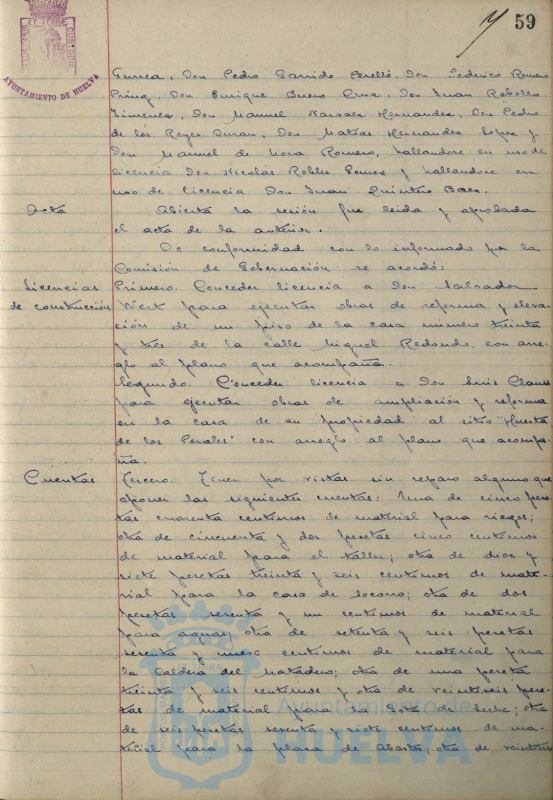 59
AYUNTAMIENTO DE HUELVA
Gurrea, Don Pedro Garrido Perelló, Don Federico Romero
Don Enrique Bueno Cruz, Don Juan Rebollo
Jimenez, Don Manuel Narvaez Hernandez, Don Pedro
de los Reyes Duran, Don Matias Hernandez Lopez y
Don Manuel de Mora Romero, hallandose en uso de
licencia Don Nicolás Robles Gomez y hallandose en
uso de licencia Don Juan Quintero Baez.
Acta
Abierta la sesión fue leida y aprobada
el acta de la anterior.
De conformidad con lo informado por la
Comisión de Gobernación se acordó:
Licencias
de construcción
Primero. Conceder licencia a Don Salvador
West para ejecutar obras de reforma y eleva-
ción de un piso de la casa numero treinta
y tres de la calle Miguel Redondo, con arre-
glo al plano que acompaña.
Segundo. Conceder licencia a Don Luis Clauss
para ejecutar obras de ampliación y reforma
en la casa de su propiedad al sitio "Huerta
de los Perales" con arreglo al plano que acompa-
ña.
Cuentas
Tercero. Tener por vistas sin reparo alguno que
oponer las siguientes cuentas: Una de cinco pese-
tas cuarenta centimos de material para riegos;
otra de cincuenta y dos pesetas cinco centimos
de material para el taller; otra de diez y
siete pesetas treinta y seis centimos de mate-
rial para la casa de socorro; otra de dos
pesetas sesenta y un centimos de material
para aguas; otra de setenta y seis pesetas
sesenta y nueve centimos de material para
la Caldera del Matadero; otra de una peseta
treinta y seis centimos y otra de veintiseis pese-
tas de material para la Gota de leche; otra
de seis pesetas sesenta y siete centimos de ma-
terial para la plaza de Abastos; otra de veintitres
Ayuntamiento de
HUELVA